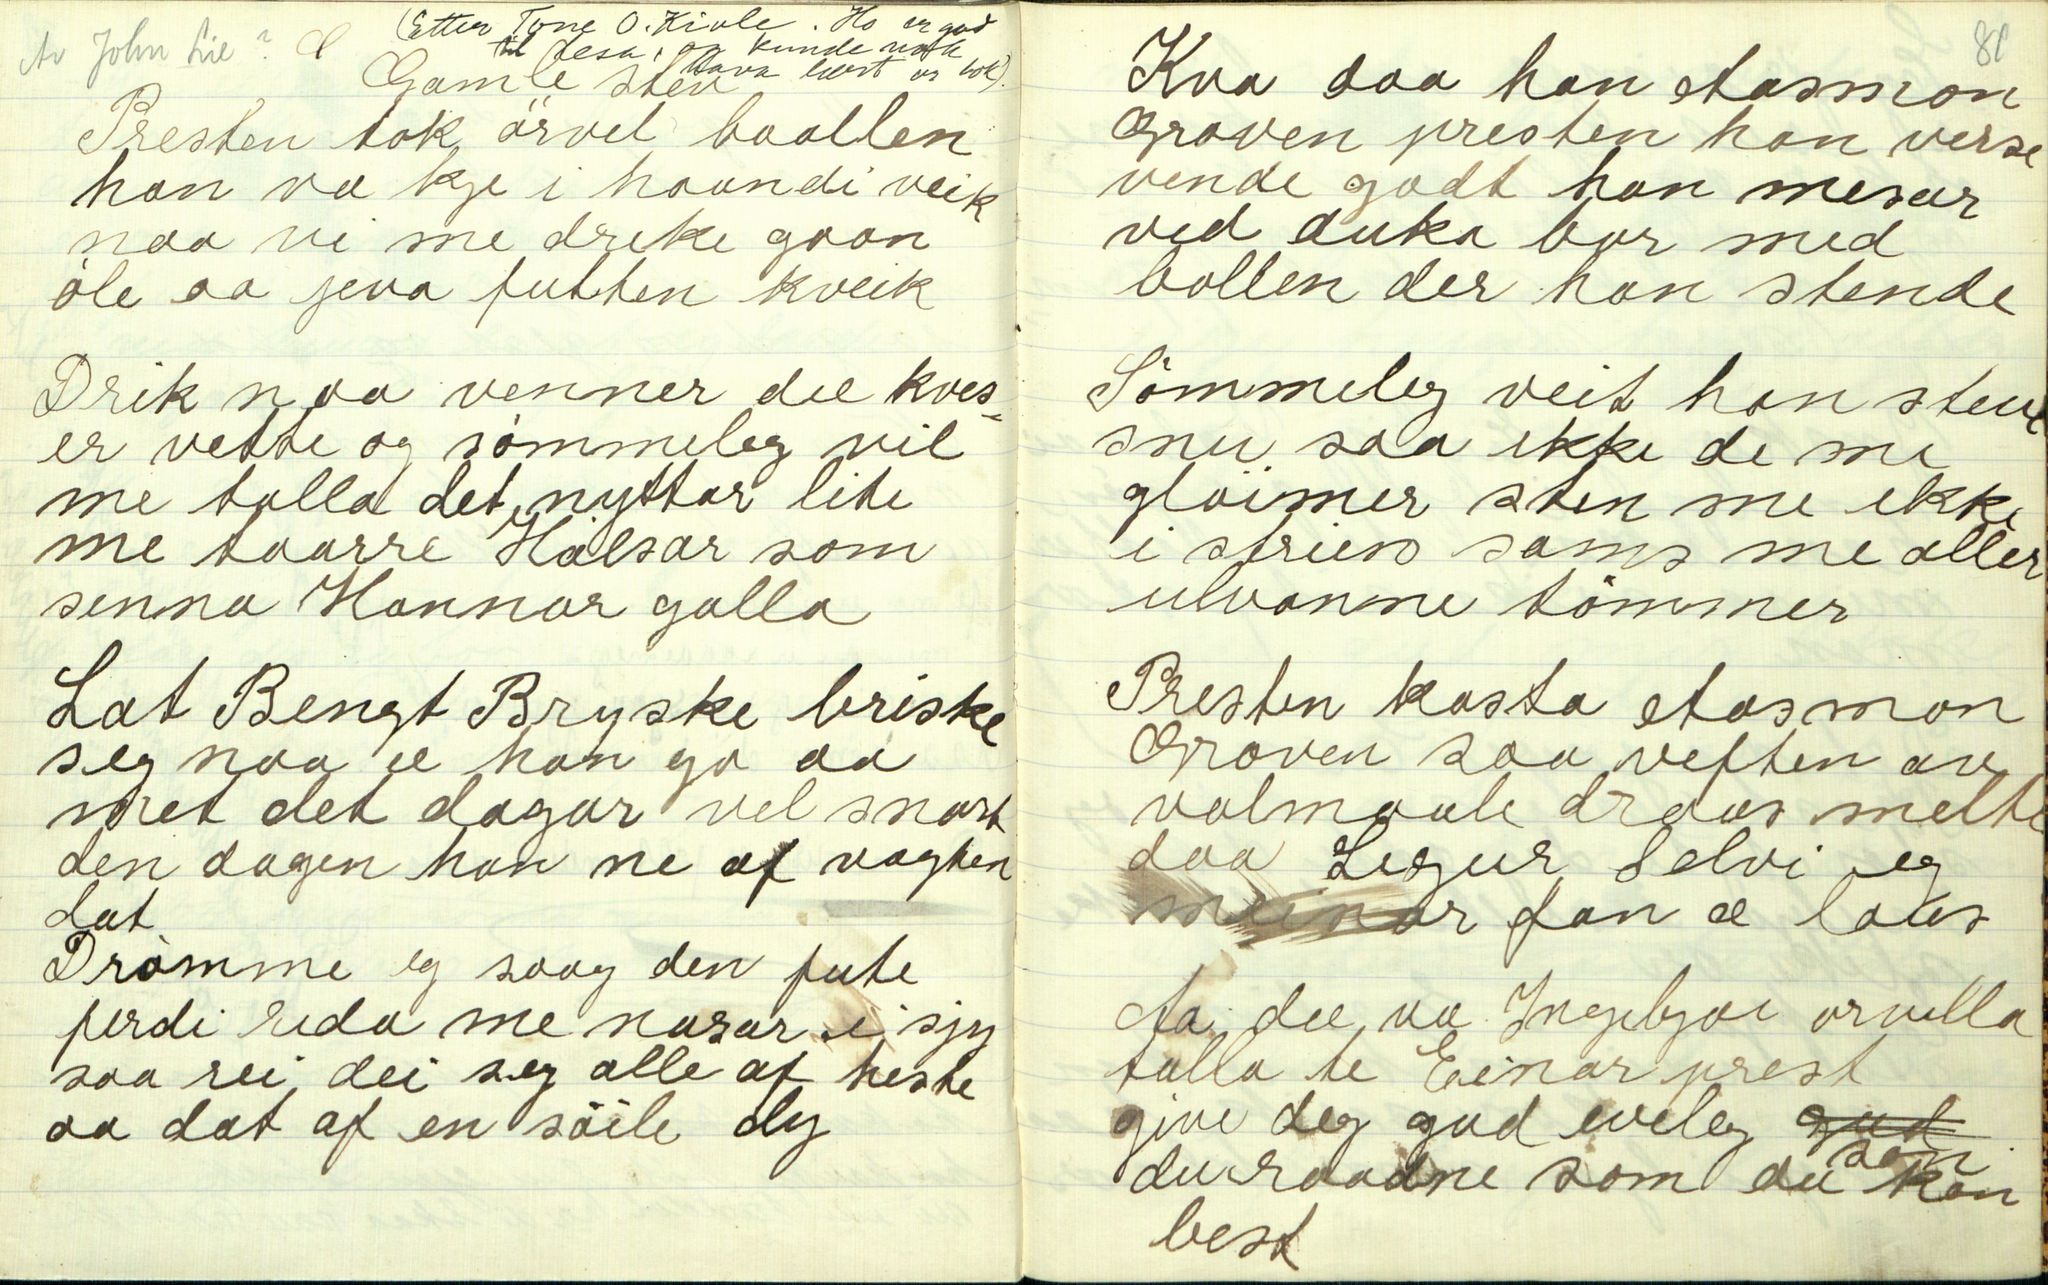 Av John Lie?
(Etter Tone O. Kivle. Ho er god
til lesa, og kunde nok
hava lært or bok).
Gamle stev
Presten tok örvel baallen
han va kje i haandi veik
naa vi me drikke gaan
öle aa jeva futten kveik
Drik naa venner dæ kves-
er vette og sömmeleg vil
me talla det nyttar lite
me taarre Halsar som
senna Hannar galla
Lat Bengt Bryske briske
seg naa æ han go aa
met det dagar vel snart
den dagen han ne af vagten
dat
Drömme eg saag den fute
ferdi rida me nasar i sjy
saa rei dei seg alle af heste
aa dat af en söile dy
81
Kva daa han Aasmon
Graven presten han verse
vende godt han mesar
ved duka bor med
bollen der han stende
Sömmeleg veit han steve
snu saa ikke de me
glöimer sten me ikke
i strien sams me aller
ulvanne tömmer
Presten kasta Aasmon
Graven saa veften av
valmaale draas melte
daa Legur Selvi eg
meinar fan æ laus
Aa dæ va Ingebjør arvilla
talla te Einar prest
give deg gud eveleg gud
duraadne som du san kan
best